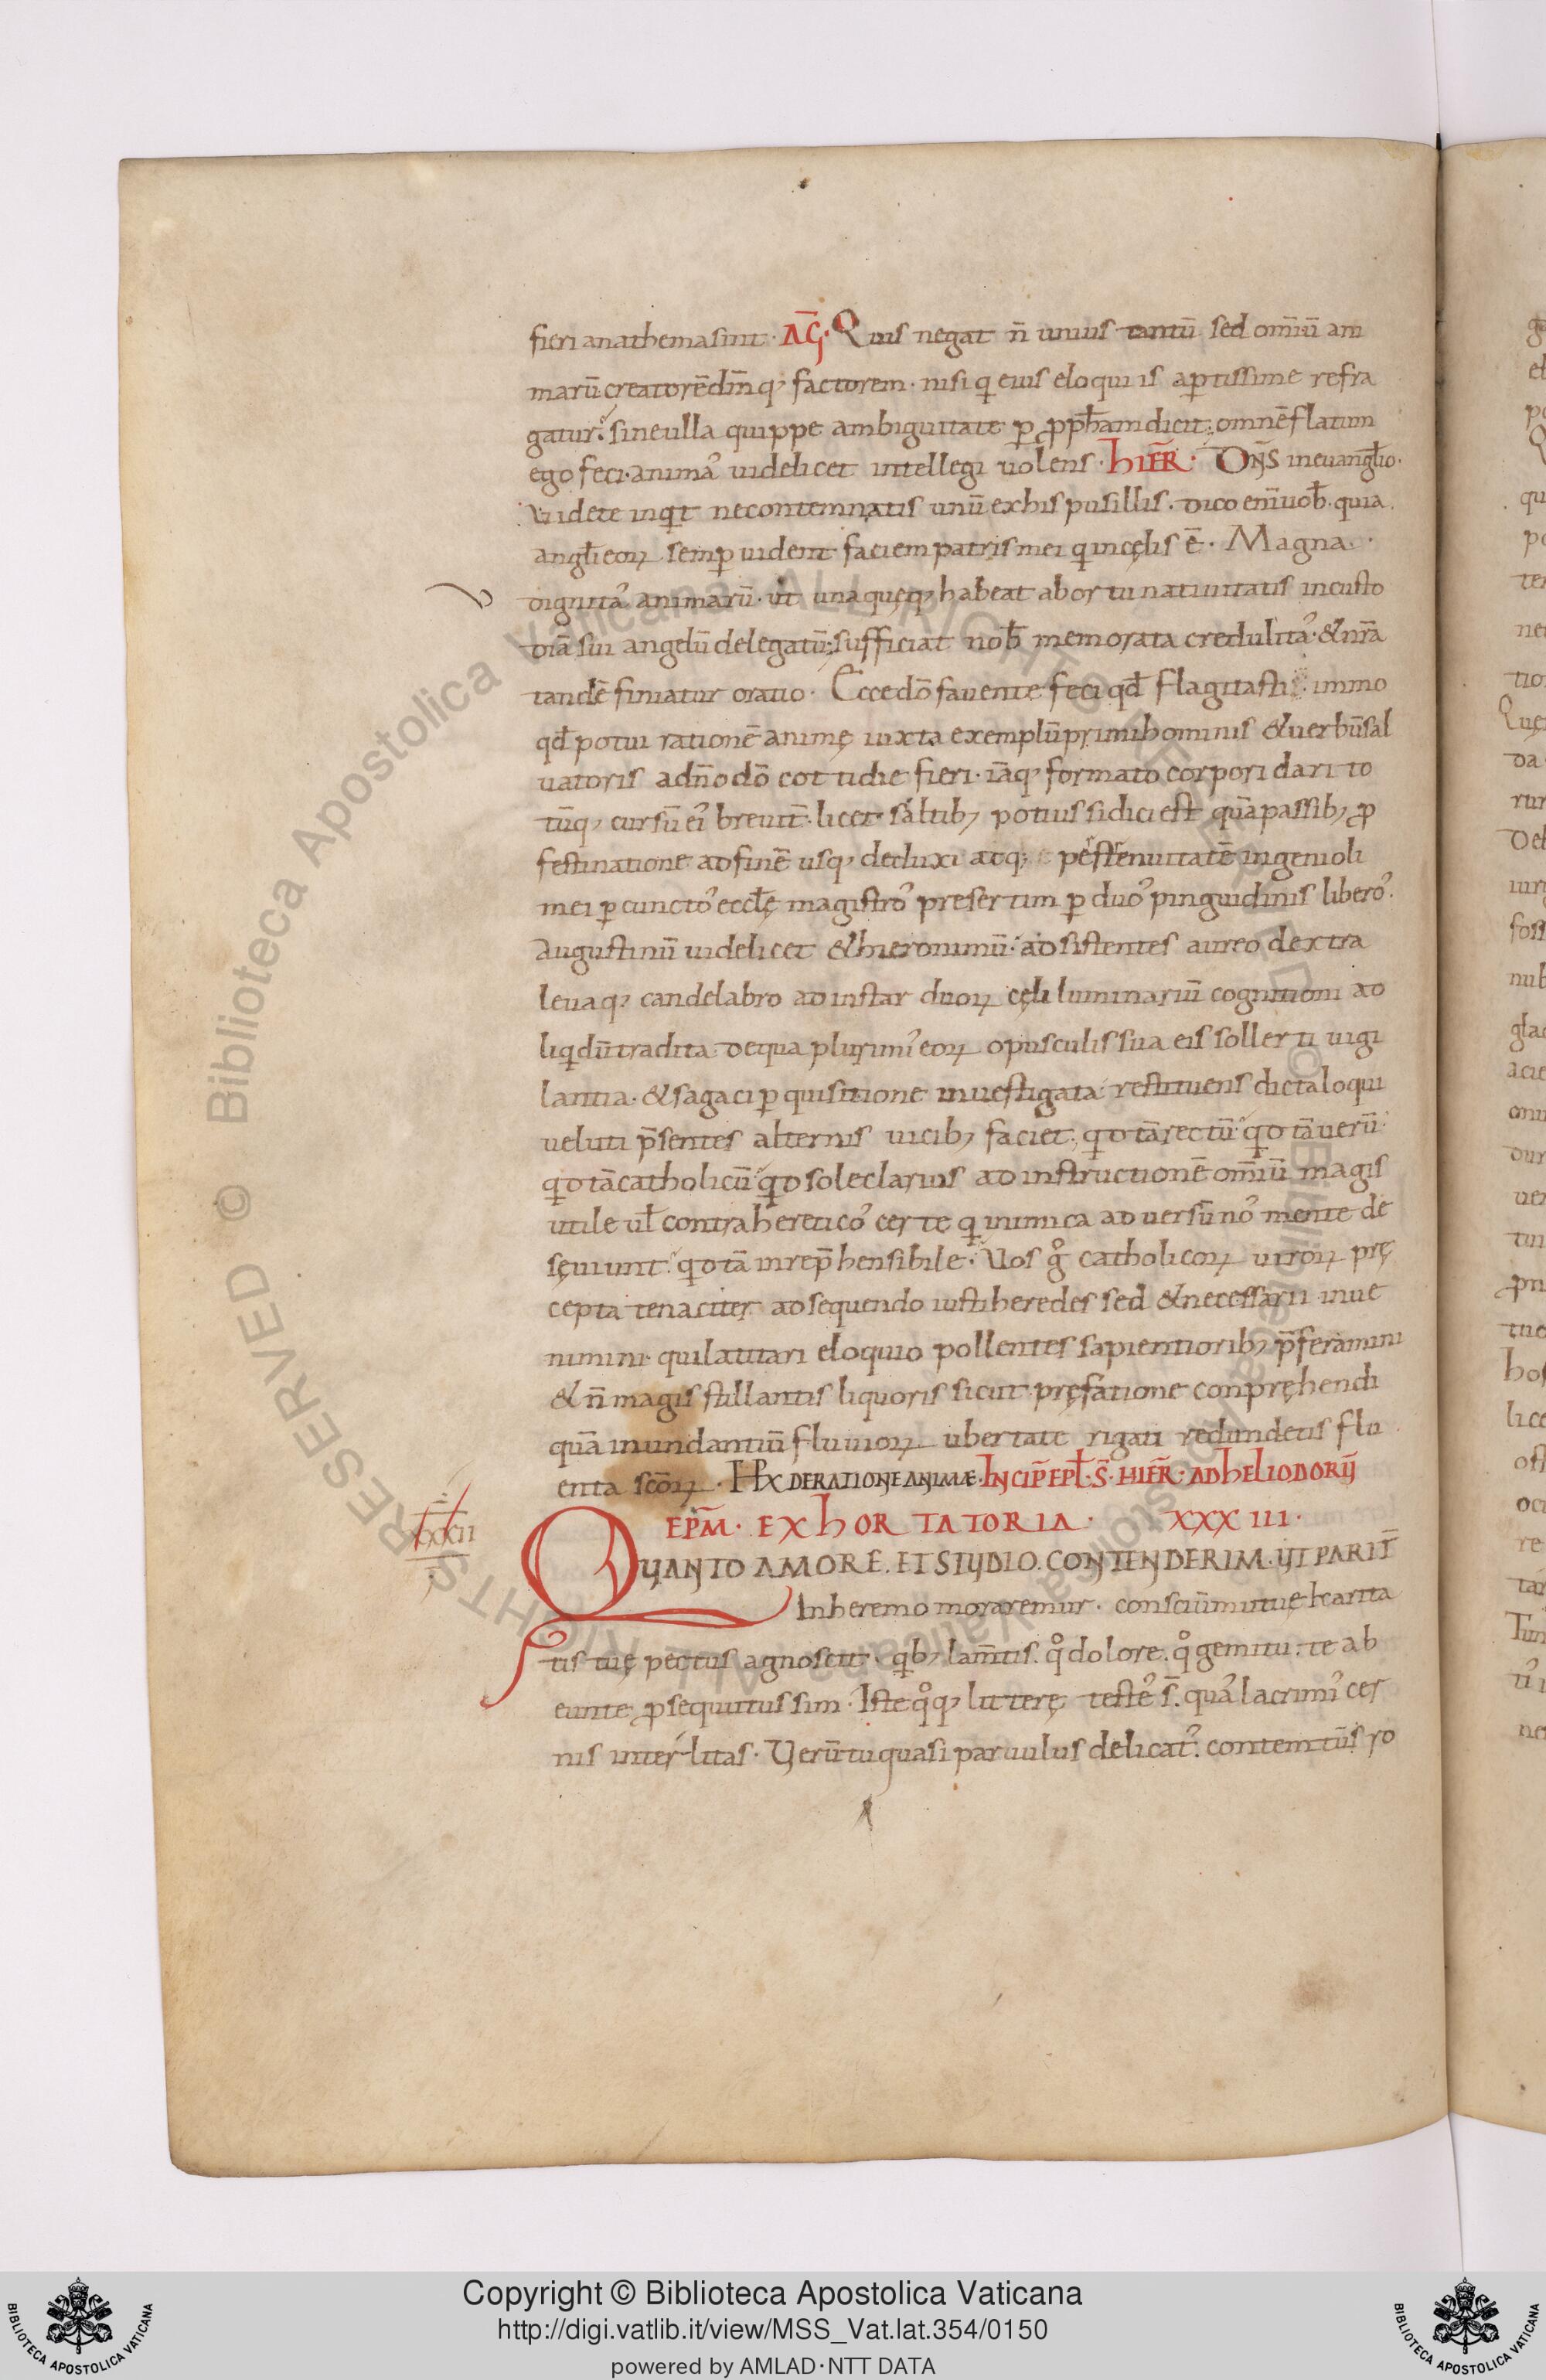 fieri anathema sint · AG̅ · Quis negat n̄ unius tantū sed om̄iū ani
marū creatorē dm̄q; factorem · nisi q eius eloquiis aptissime refra
gatur · sine ulla quippe ambiguitate p ꝓph̄am dicit · omnē flatum
ego feci · anima᾽ uidelicet intellegi uolens · HIER̄ · DN̄S in euangłio ·
Uidete inqt ne contemnatis unū ex his pusillis · dico enī uob̄ · quia
angłi eoꝝ semp uident faciem patris mei q in cęlis ē · Magna
dignita᾽ animarū · ut unaquęq; habeat ab ortu natiuitatis in custo
diā sui angelū delegatū · sufficiat nob̄ memorata credulita᾽ · & nr̄a
tandē finiatur oratio · Ecce dō fauente feci qđ flagitasti · immo
qđ potui rationē animę iuxta exemplū primi hominis & uerbū sal
uatoris adn̄o dō cottidie fieri · iāq; formato corpori dari to
tūq; cursū ei᾽ breuit̄ · licet saltib; potius si dici est quā passib; ꝓ
festinatione ad finē usq; deduxi atq; pestenuitatē ingenioli
mei p cuncto᾽ eccłę magistro᾽ presertim p duo᾽ pinguidinis libero᾽ ·
augustinū uidelicet & hieronimū · adsistentes aureo dextra
leuaq; candelabro ad instar duoꝝ cęli luminariū cognitioni ad
liqdū tradita · de qua plurimi᾽ eoꝝ opusculis sua eis sollerti uigi
lantia · & sagaci p quisitione inuestigata restituens dicta loqui
ueluti p̄sentes alternis uicib; faciet · qd tā rectū · qd tā uerū ·
qd tā catholicū · qd sole clarius ad instructionē om̄iū magis
utile uł contra heretico᾽ certe q inimica aduersū no᾽ mente de
sęuiunt · qd tā inrep̄hensibile · Uos g̊ catholicoꝝ uiroꝝ prę
cepta tenaciter adsequendo iusti heredes sed & necessarii inue
nimini · qui latitari eloquio pollentes sapientiorib; p̄feramini
& n̄ magis stillantis liquoris sicut pręfatione conpręhendi
quā inundantiū fluuioꝝ ubertate rigati redundetis flu
enta sc̄oꝝ · EXP DE RATIONE ANIMÆ · INCIP̄ EPł · S̄ · HIER̄ · AD HELIODORŪ
XXXII
EPM̄ · EXHORTATORIA · XXXIII ·
QUANTO AMORE · ET STUDIO · CONTENDERIM · UT PARIT̄
In heremo moraremur · consciū mutuę karita
tis tuę pectus agnoscit · qb; lam̄tis · q̊ dolore · q̊ gemitu · te ab
eunte ꝓsequutus sim · Iste q̊q; litterę teste᾽ s̄ · qua᾽ lacrimi᾽ cer
nis inter litas · Uerū tu quasi paruulus delicat᾽ · contemtū s ro
Copyright © Biblioteca Apostolica Vaticana
http://digi.vatlib.it/view/MSS_Vat.lat.354/0150
powered by AMLAD·NTT DATA